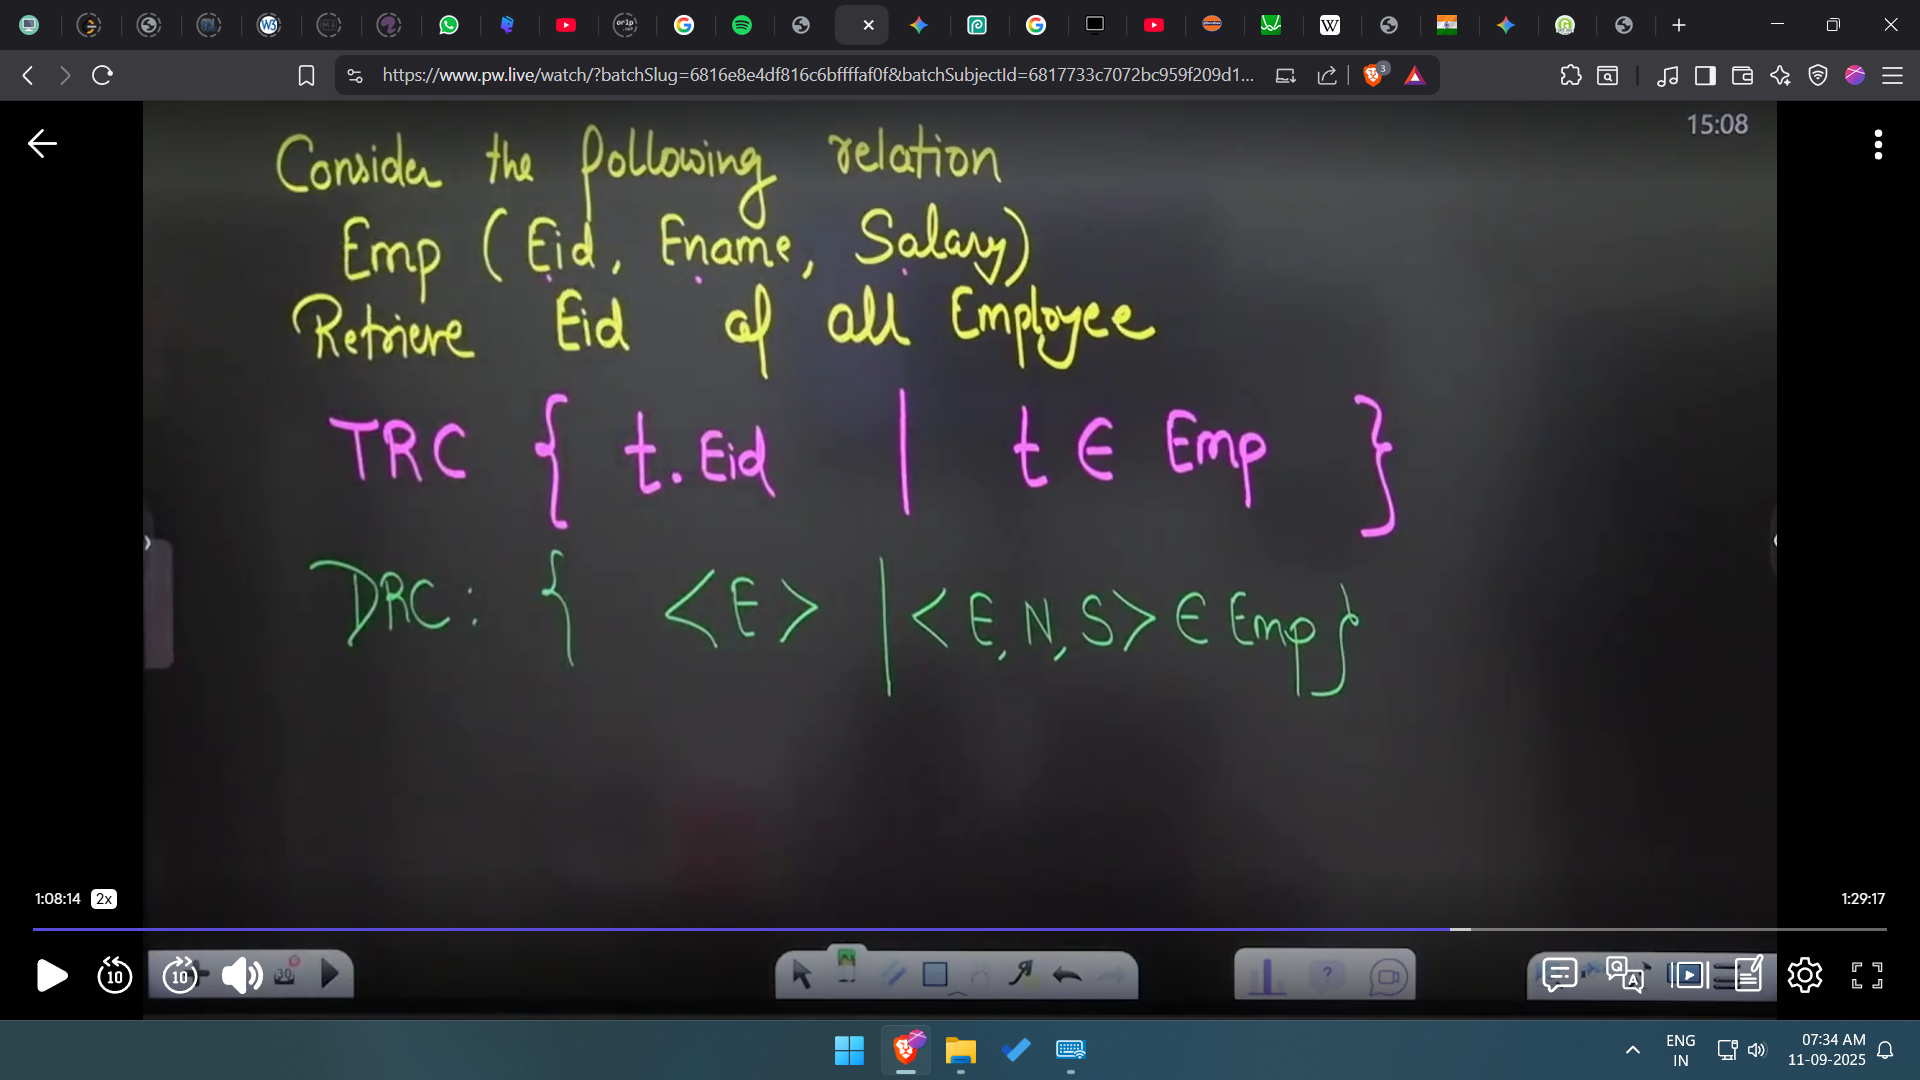 https://www.pw.live/watch/?batchSlug=6816e8e4df816c6bffffaf0f&batchSubjectId=6817733c7072bc959f209d1...
3
15:08
Consider the following relation
Emp (Eid, Ename, Salary)
Retrieve Eid of all Employee
TRC { t.Eid | t ∈ Emp }
DRC: { <E> | <E, N, S> ∈ Emp}
1:08:14 2x 1:29:17
10 10 30
ENG 07:34 AM
IN 11-09-2025